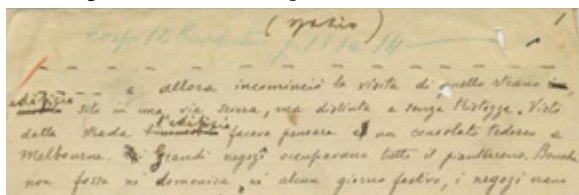 (spazio) 1
corpo 12
e allora incominciò la visita di quello strano
edifizio sito in una via scura, ma distinta e senza
dalla strada l'edifizio faceva pensare a un consolato tedesco a
Melbourne. Grandi negozi occupavano tutto il pianterreno. Benchè
non fosse nè domenica, nè alcun giorno festivo, i negozi erano